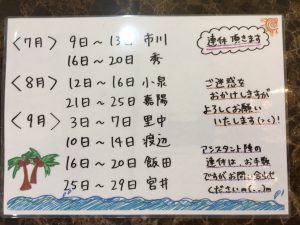 <7月> 9日～13日 市川
16日～20日 秀
<8月> 12日～16日 小泉
21日～25日 嘉陽
<9月> 3日～7日 里中
10日～14日 渡辺
16日～20日 飯田
25日～29日 宮井
連休頂きます
ご迷惑を
おかけしますが
よろしくお願い
いたします(>_<)!
アシスタント陣の
連休は、お手数
ですがお問い合わせ
くださいm(_ _)m